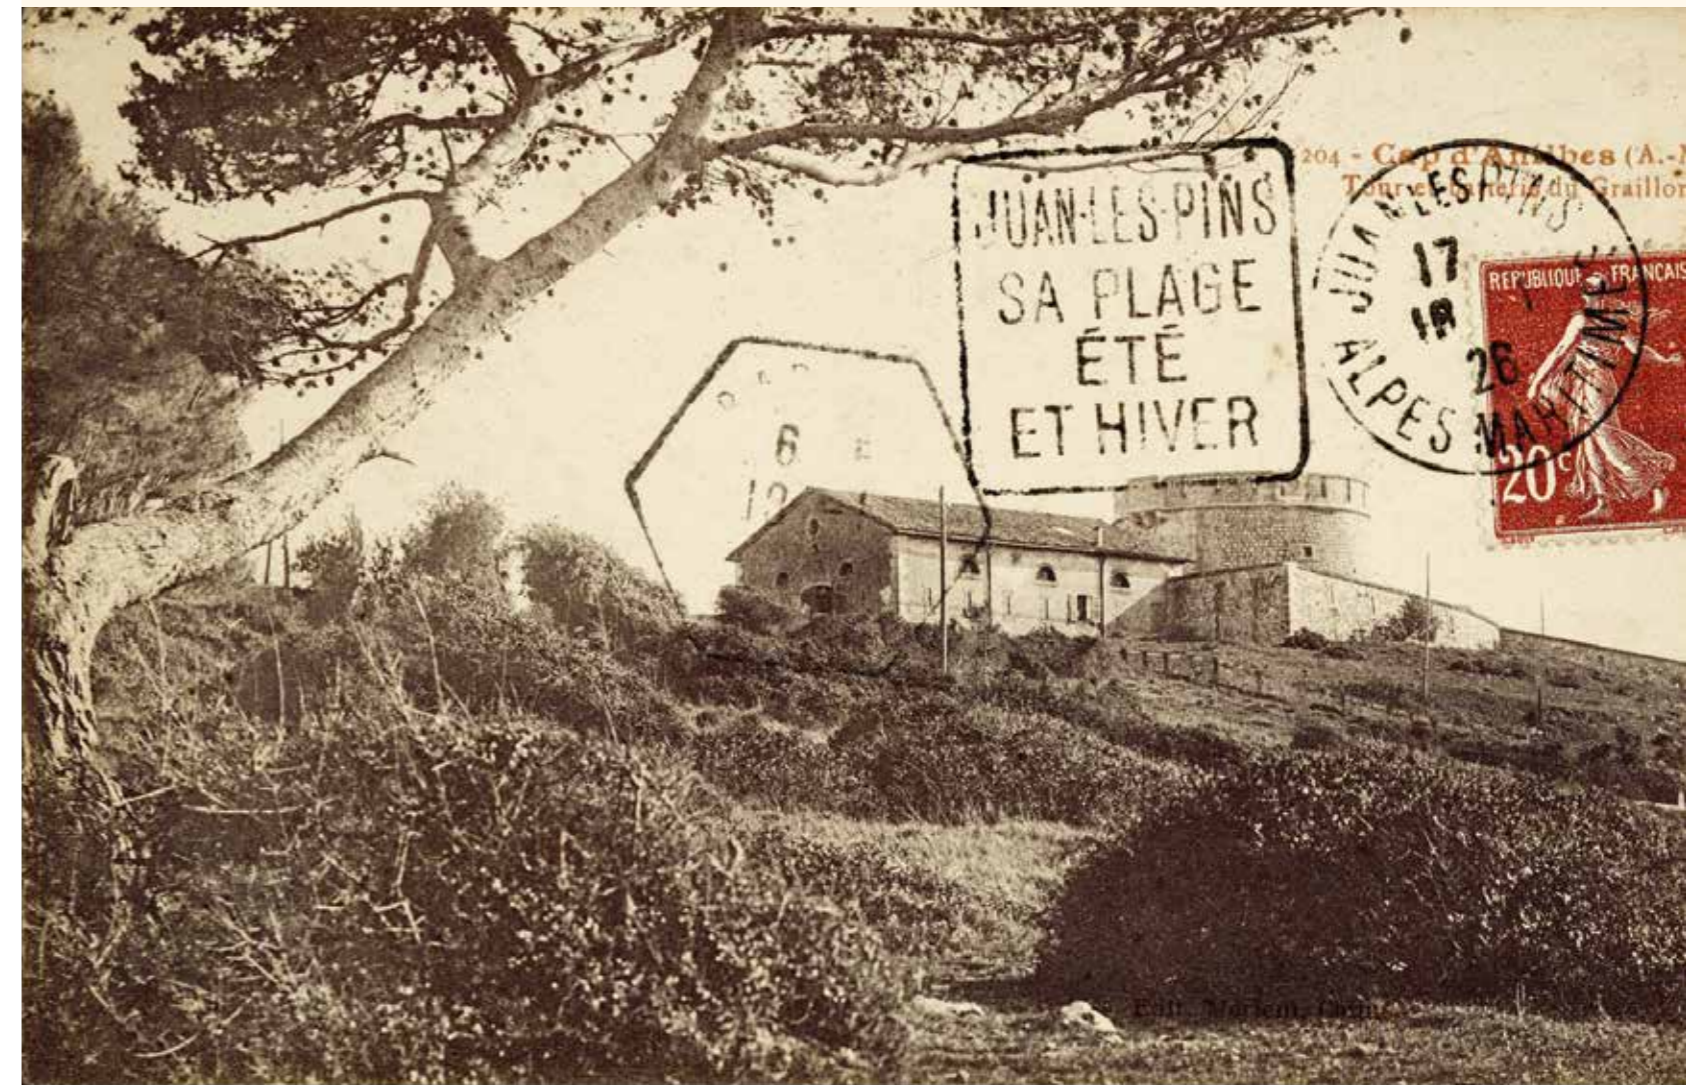 204 - Cap d'Antibes (A.-M
Tour et batterie du Graillon
JUAN-LES-PINS
SA PLAGE
ÉTÉ
ET HIVER
JUAN-LES-PINS
17
26
ALPES MARITIMES
REPUBLIQUE FRANCAIS
20c
6
12
Edit.